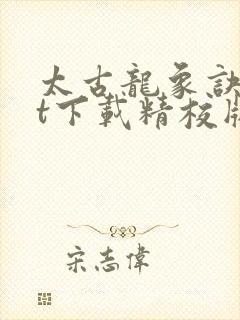 太古龍象訣
t下載精校版
宋志偉